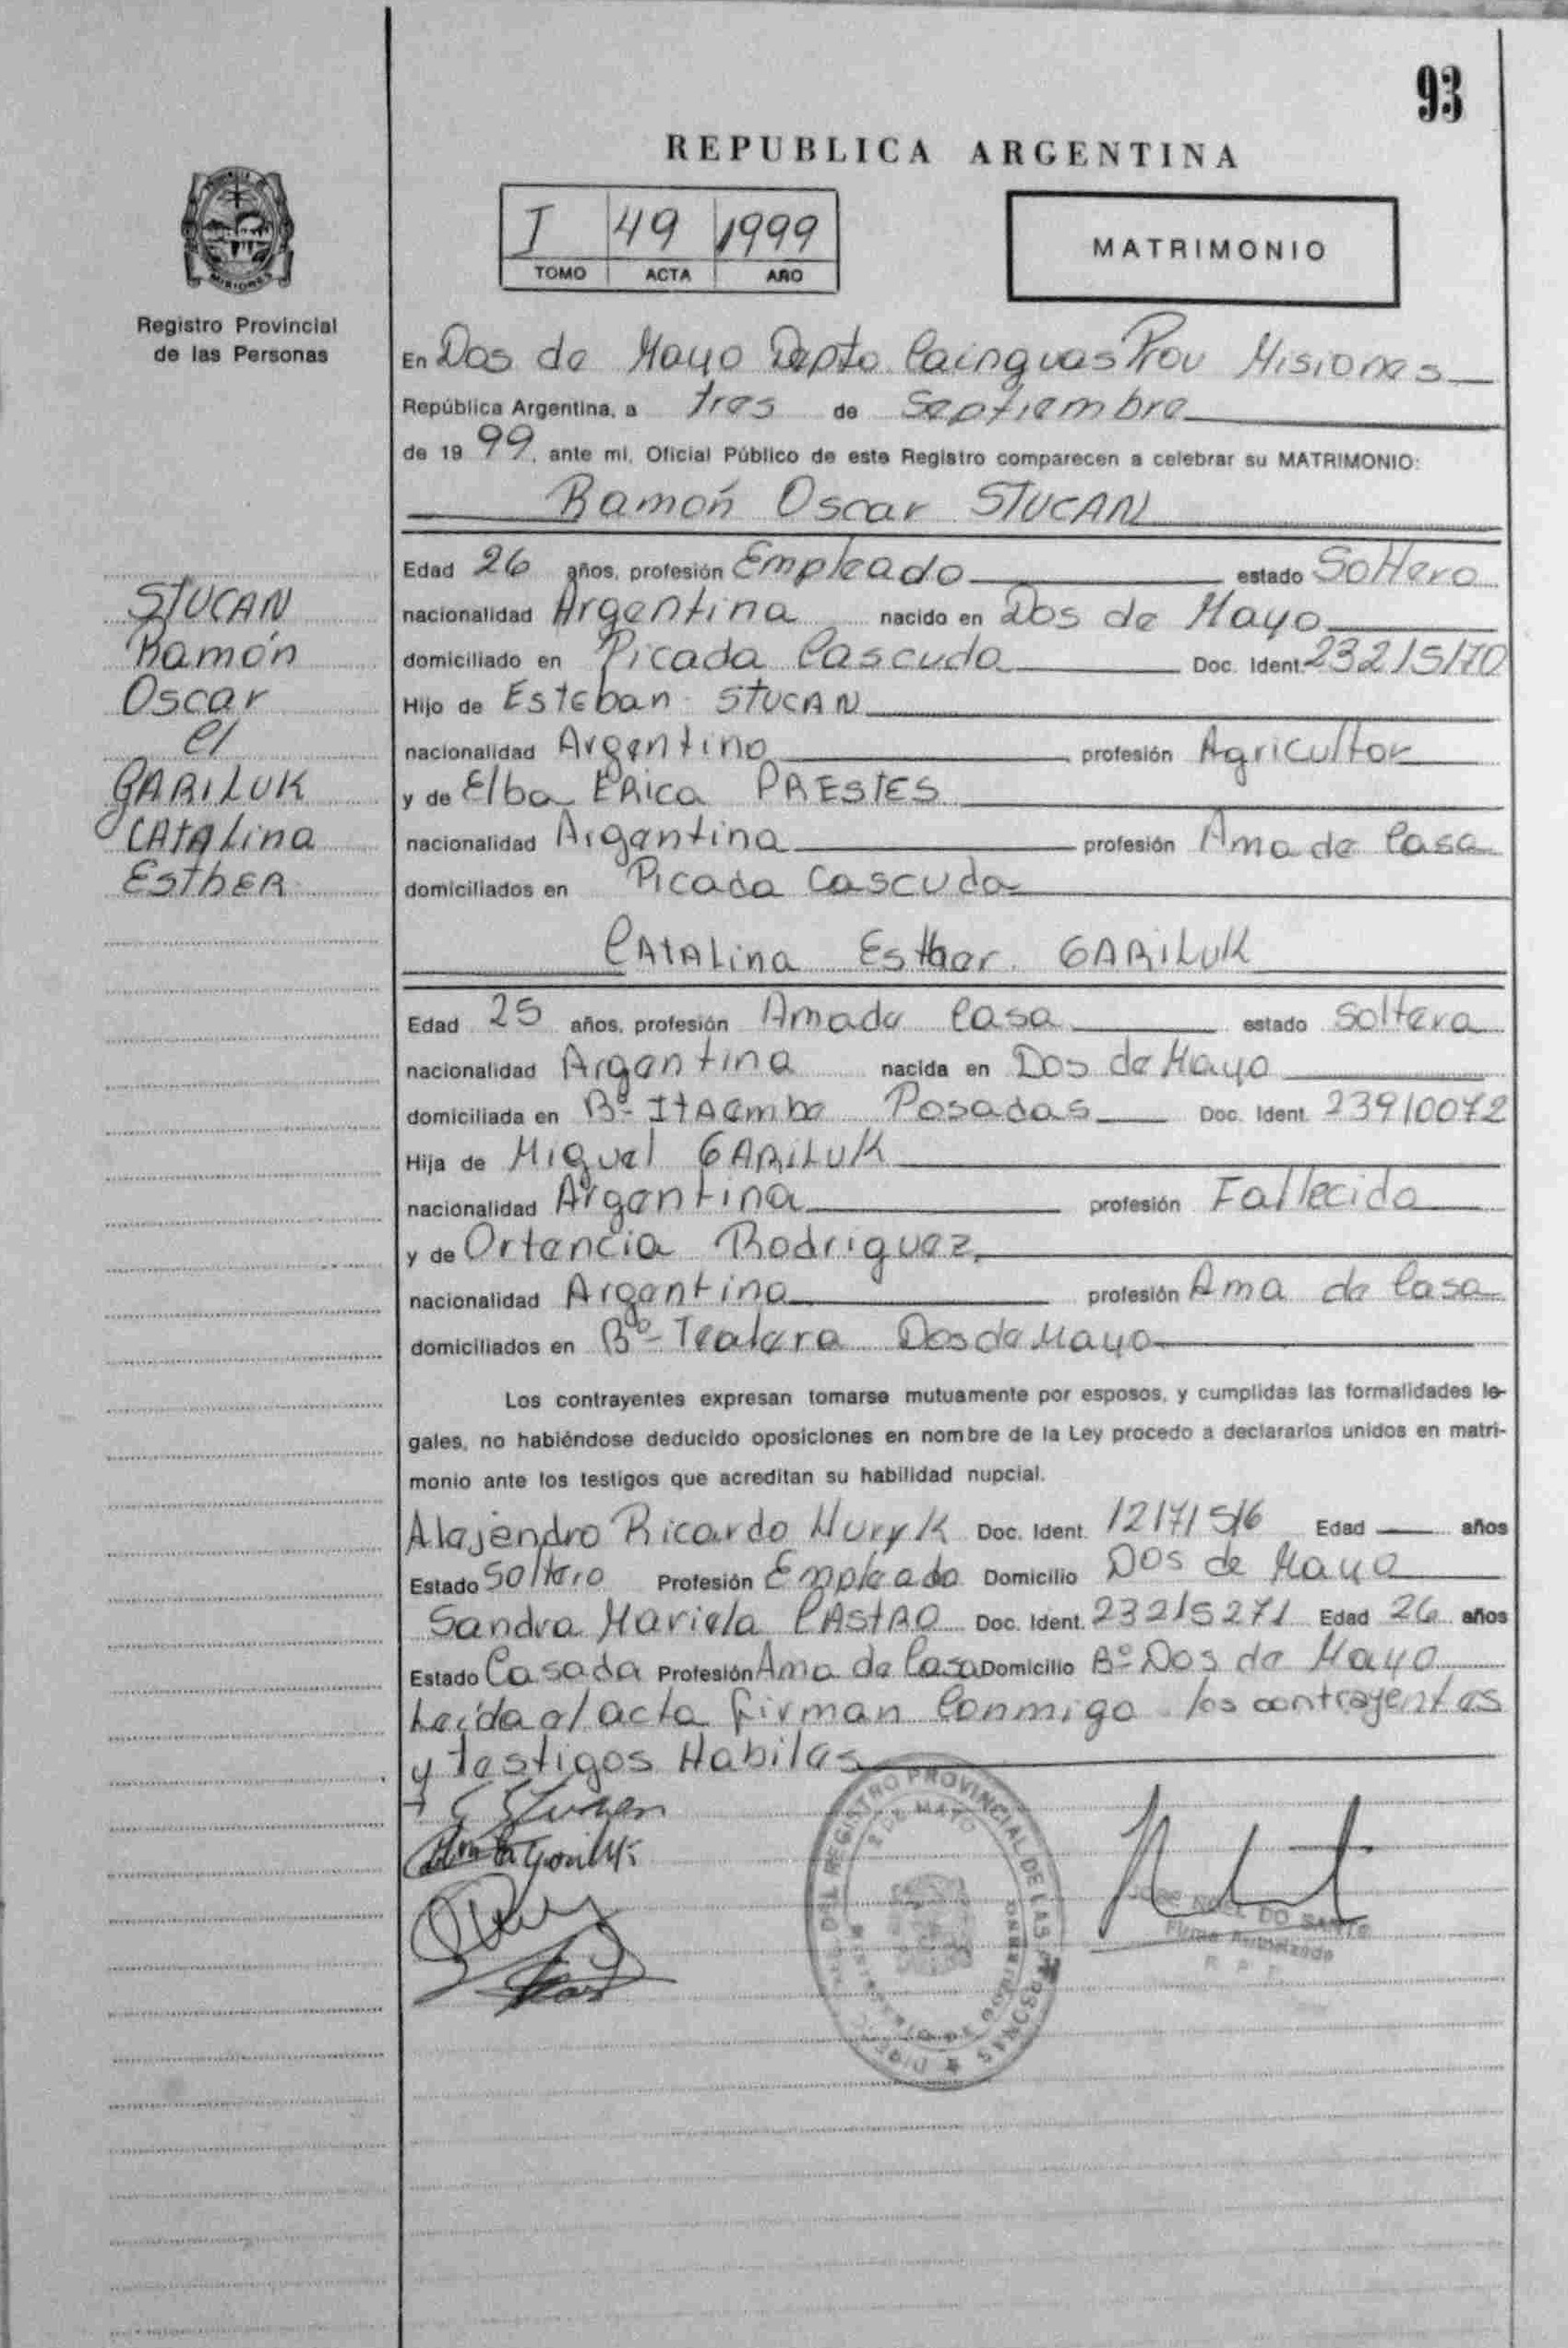 93
REPUBLICA ARGENTINA
I 49 1999
TOMO ACTA AÑO
MATRIMONIO
MISIONES
Registro Provincial
de las Personas
En Dos de Mayo Depto Cainguas Prov Misiones
República Argentina, a tres de Septiembre
de 19 99, ante mí, Oficial Público de este Registro comparecen a celebrar su MATRIMONIO:
Ramón Oscar STUCAN
Edad 26 años, profesión Empleado estado Soltero
nacionalidad Argentina nacido en Dos de Mayo
domiciliado en Picada Cascuda Doc. Ident. 23215170
Hijo de Esteban STUCAN
nacionalidad Argentino profesión Agricultor
y de Elba ERica PRESTES
nacionalidad Argentina profesión Ama de Casa
domiciliados en Picada Cascuda
STUCAN
Ramón
Oscar
c/
GARILUK
CATALina
EsthER
CATALina Esther GARiLUK
Edad 25 años, profesión Amade Casa estado soltera
nacionalidad Argentina nacida en Dos de Mayo
domiciliada en Bº ItAembe Posadas Doc. Ident. 23910072
Hija de Miguel GARiLUK
nacionalidad Argentina profesión Fallecido
y de Ortencia Rodriguez
nacionalidad Argentina profesión Ama de Casa
domiciliados en Bº Tealera Dos de Mayo
Los contrayentes expresan tomarse mutuamente por esposos, y cumplidas las formalidades le-
gales, no habiéndose deducido oposiciones en nombre de la Ley procedo a declararlos unidos en matri-
monio ante los testigos que acreditan su habilidad nupcial.
Alejendro Ricardo Huryk Doc. Ident. 12171516 Edad años
Estado Soltero Profesión Empleado Domicilio Dos de Mayo
Sandra Mariela CAStRO Doc. Ident. 23215271 Edad 26 años
Estado Casada Profesión Ama de Casa Domicilio Bº Dos de Mayo
Leída el acta firman Conmigo los contrayentes
y testigos Habiles
DEL REGISTRO PROVINCIAL DE LAS PERSONAS
2 DE MAYO
MINISTERIO DE GOBIERNO
JOSE NOEL DO SANTO
Firma Autorizada